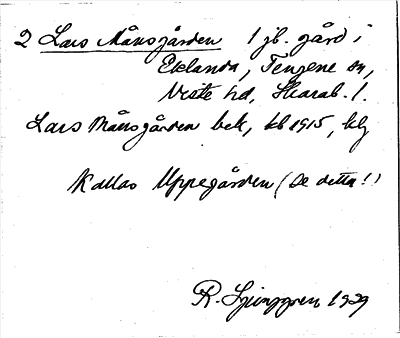 2 Lars Månsgården 1 jb. gård i
Eklanda, Tengene sn,
Viste hd, Skarab. l.
Lars Månsgården bek, kb 1915, hlj
Kallas Uppegården (Se detta!)
R. Ljunggren 1929